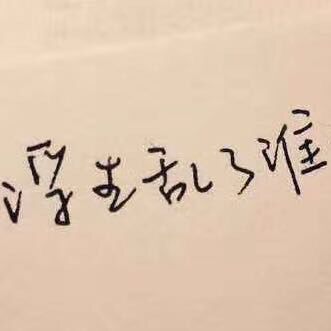 浮生乱了谁